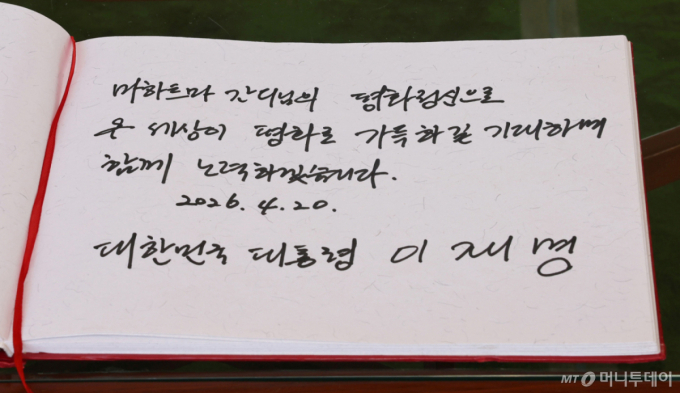 마하트마 간디님의 평화정신으로
온 세상이 평화로 가득하길 기대하며
함께 노력하겠습니다.
2026. 4. 20.
대한민국 대통령 이 재 명
MT 머니투데이